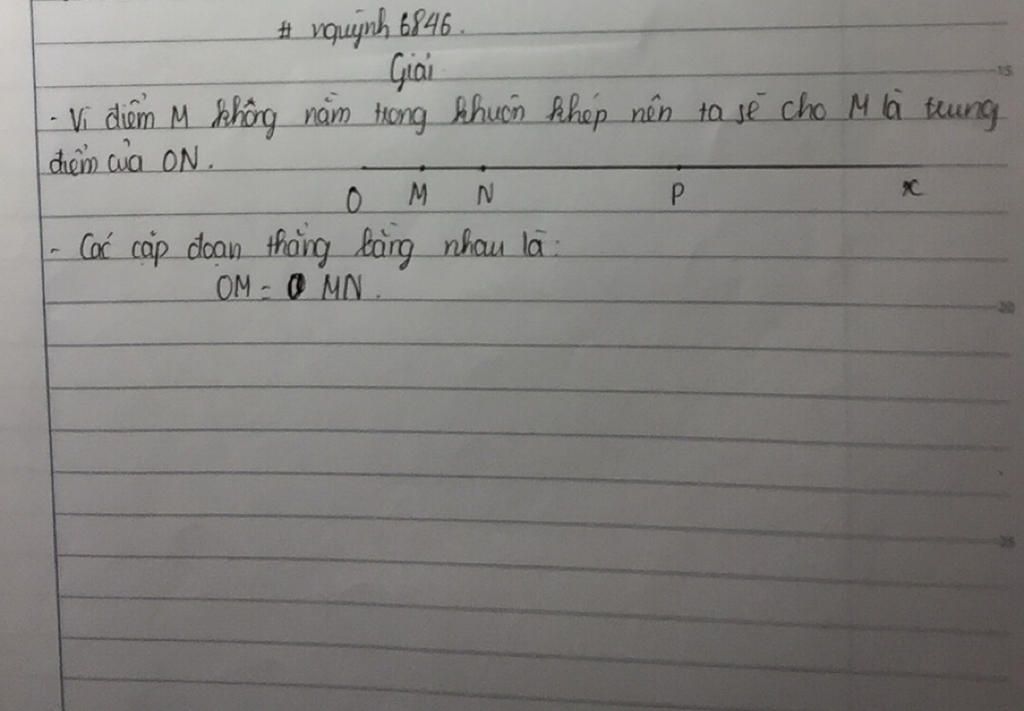 # nquỳnh 6846.
Giải
- Vì điểm M không nằm trong khuôn khép nên ta sẽ cho M là trung
điểm của ON.
O M N P x
- Các cặp đoạn thẳng bằng nhau là:
OM = MN.
15
20
25